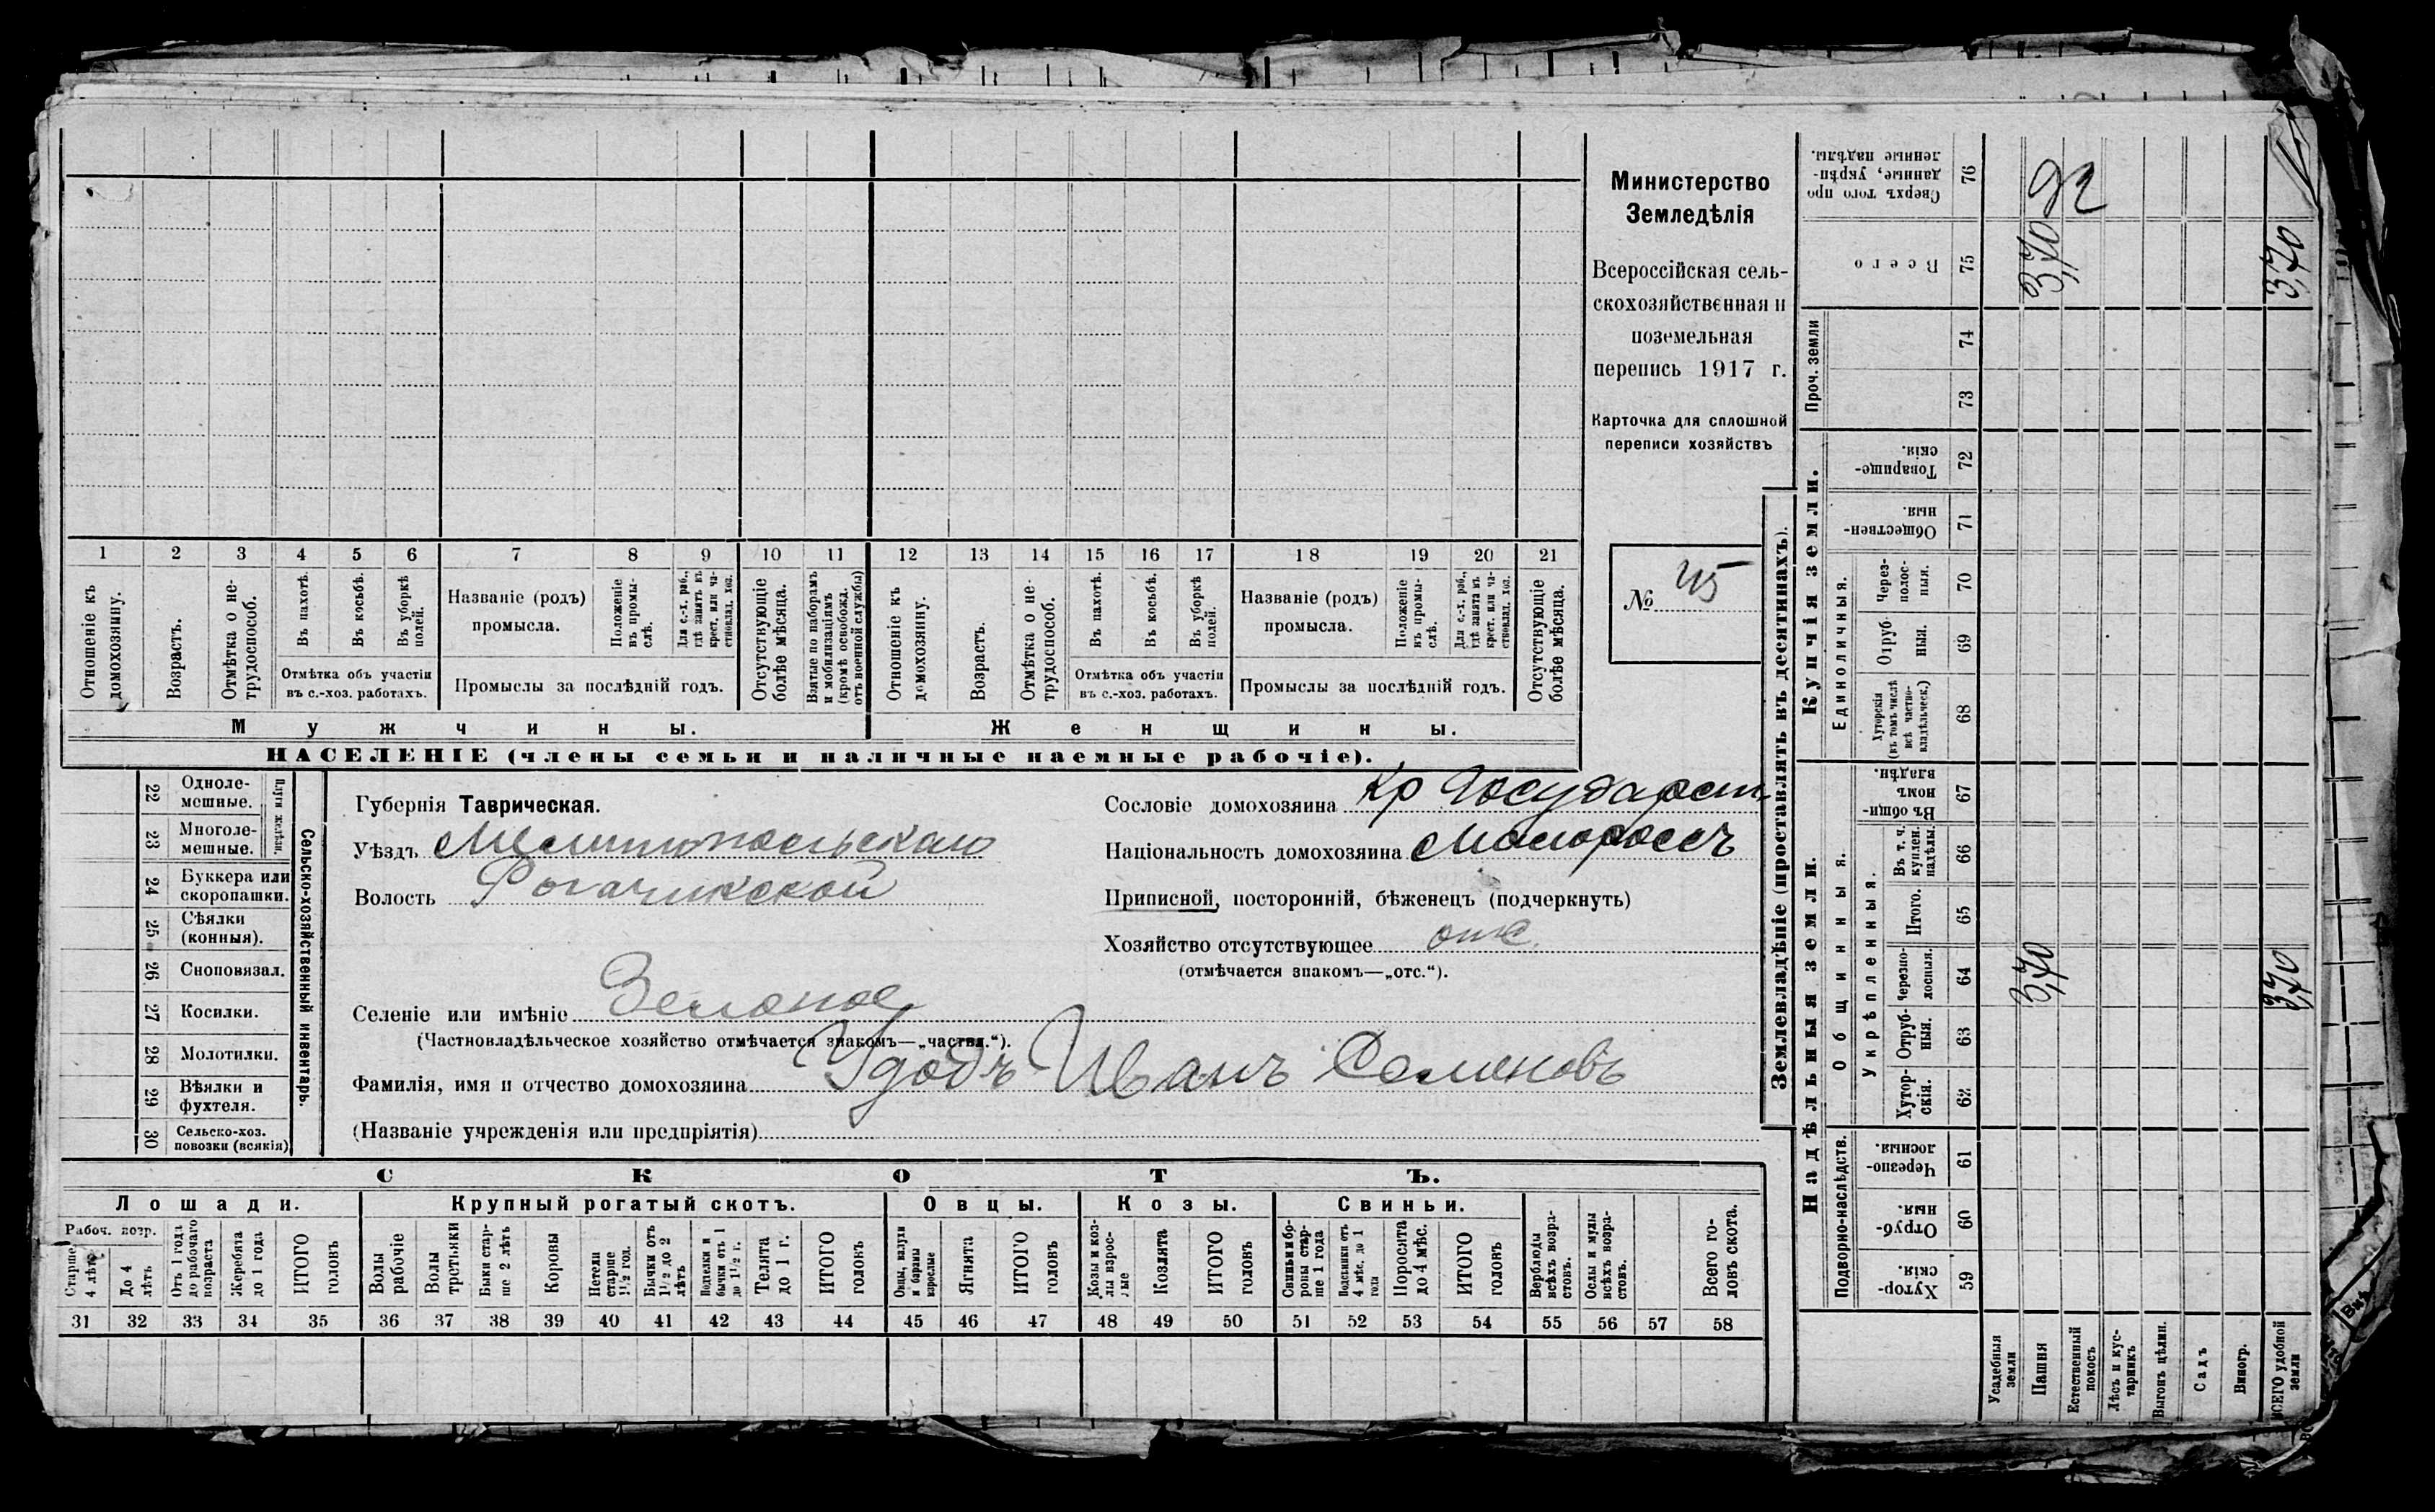 Министерство
Земледѣлія
Всероссійская сель-
скохозяйственная и
поземельная
перепись 1917 г.
Карточка для сплошной
переписи хозяйствъ
№ 45
1 2 3 4 5 6 7 8 9 10 11 12 13 14 15 16 17 18 19 20 21
Отношеніе къ домохозяину.
Возрастъ.
Отмѣтка о не-трудоспособ.
Въ пахотѣ.
Въ косьбѣ.
Въ уборкѣ полей.
Отмѣтка объ участіи
въ с.-хоз. работахъ.
Названіе (родъ)
промысла.
Положеніе въ промы-слѣ.
Для с.-х. раб., гдѣ занятъ въ крест. или ча-стновлад. хоз.
Промыслы за послѣдній годъ.
Отсутствующіе болѣе мѣсяца.
Взятые по наборамъ и мобилизаціямъ (кромѣ освобожд. отъ военной службы)
Отношеніе къ домохозяину.
Возрастъ.
Отмѣтка о не-трудоспособ.
Въ пахотѣ.
Въ косьбѣ.
Въ уборкѣ полей.
Отмѣтка объ участіи
въ с.-хоз. работахъ.
Названіе (родъ)
промысла.
Положеніе въ промы-слѣ.
Для с.-х. раб., гдѣ занята въ крест. или ча-стновлад. хоз.
Промыслы за послѣдній годъ.
Отсутствующіе болѣе мѣсяца.
Мужчины.
Женщины.
НАСЕЛЕНІЕ (члены семьи и наличные наемные рабочіе).
22 Одноле-мешные.
23 Многоле-мешные.
Плуги желѣзн.
24 Буккера или скоропашки.
25 Сѣялки (конныя).
26 Сноповязал.
27 Косилки.
28 Молотилки.
29 Вѣялки и фухтеля.
30 Сельско-хоз. повозки (всякія)
Сельско-хозяйственный инвентарь.
Губернія Таврическая.
Уѣздъ Мелитопольскаго
Волость Рогачикской
Селеніе или имѣніе Зеленое
(Частновладѣльческое хозяйство отмѣчается знакомъ—„частвл.“).
Фамилія, имя и отчество домохозяина Удодъ Иванъ Семеновъ
(Названіе учрежденія или предпріятія)
Сословіе домохозяина Кр Государст
Національность домохозяина Малороссъ
Приписной, посторонній, бѣженецъ (подчеркнуть)
Хозяйство отсутствующее отс.
(отмѣчается знакомъ—„отс.“).
СКОТЪ.
Лошади.
Крупный рогатый скотъ.
Овцы.
Козы.
Свиньи.
Рабоч. возр.
Старше 4 лѣтъ
До 4 лѣтъ
Отъ 1 года до рабочаго возраста
Жеребята до 1 года
ИТОГО головъ
Волы рабочіе
Волы третьяки
Быки стар-ше 2 лѣтъ
Коровы
Нетели старше 1½ год.
Бычки отъ 1½ до 2 лѣтъ
Подтелки и бычки отъ 1 до 1½ г.
Телята до 1 г.
ИТОГО головъ
Овцы, валухи и бараны взрослые
Ягнята
ИТОГО головъ
Козы и коз-лы взрос-лые
Козлята
ИТОГО головъ
Свиньи и бо-ровы стар-ше 1 года
Подсвинки отъ 4 мѣс. до 1 года
Поросята до 4 мѣс.
ИТОГО головъ
Верблюды всѣхъ возра-стовъ.
Ослы и мулы всѣхъ возра-стовъ.
Всего го-ловъ скота.
31 32 33 34 35 36 37 38 39 40 41 42 43 44 45 46 47 48 49 50 51 52 53 54 55 56 57 58
Землевладѣніе (проставлять въ десятинахъ).
Надѣльныя земли.
Купчія земли.
Проч. земли
Подворно-наслѣдств.
Общинныя.
Укрѣпленныя.
Единоличныя.
Хутор-скія. 59
Отруб-ныя. 60
Черезпо-лосныя. 61
Хутор-скія. 62
Отруб-ныя. 63
Черезпо-лосныя. 64
Итого. 65
Въ т. ч. куплен. надѣлы. 66
Въ общи-номъ владѣн. 67
Хуторскія (въ томъ числѣ всѣ частно-владѣльческ.) 68
Отруб-ныя. 69
Через-полос-ныя. 70
Обществен-ныя. 71
Товарище-скія. 72
73
74
Всего 75
Сверхъ того про-данные, укрѣп-ленные надѣлы. 76
Усадебныя земли
Пашня 3,70 3,70
Естественный покосъ
Лѣсъ и кус-тарникъ
Выгонъ цѣлин.
Садъ
Виногр.
ВСЕГО удобной земли 3,70 3,70